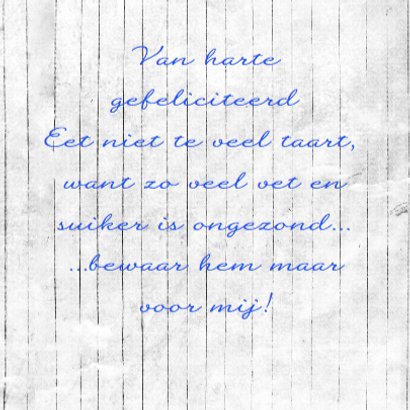 Van harte
gefeliciteerd
Eet niet te veel taart,
want zo veel vet en
suiker is ongezond...
...bewaar hem maar
voor mij!